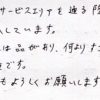 サービスエリアを通る際
しています。
は品があり、何より
です。
もよろしくお願いします